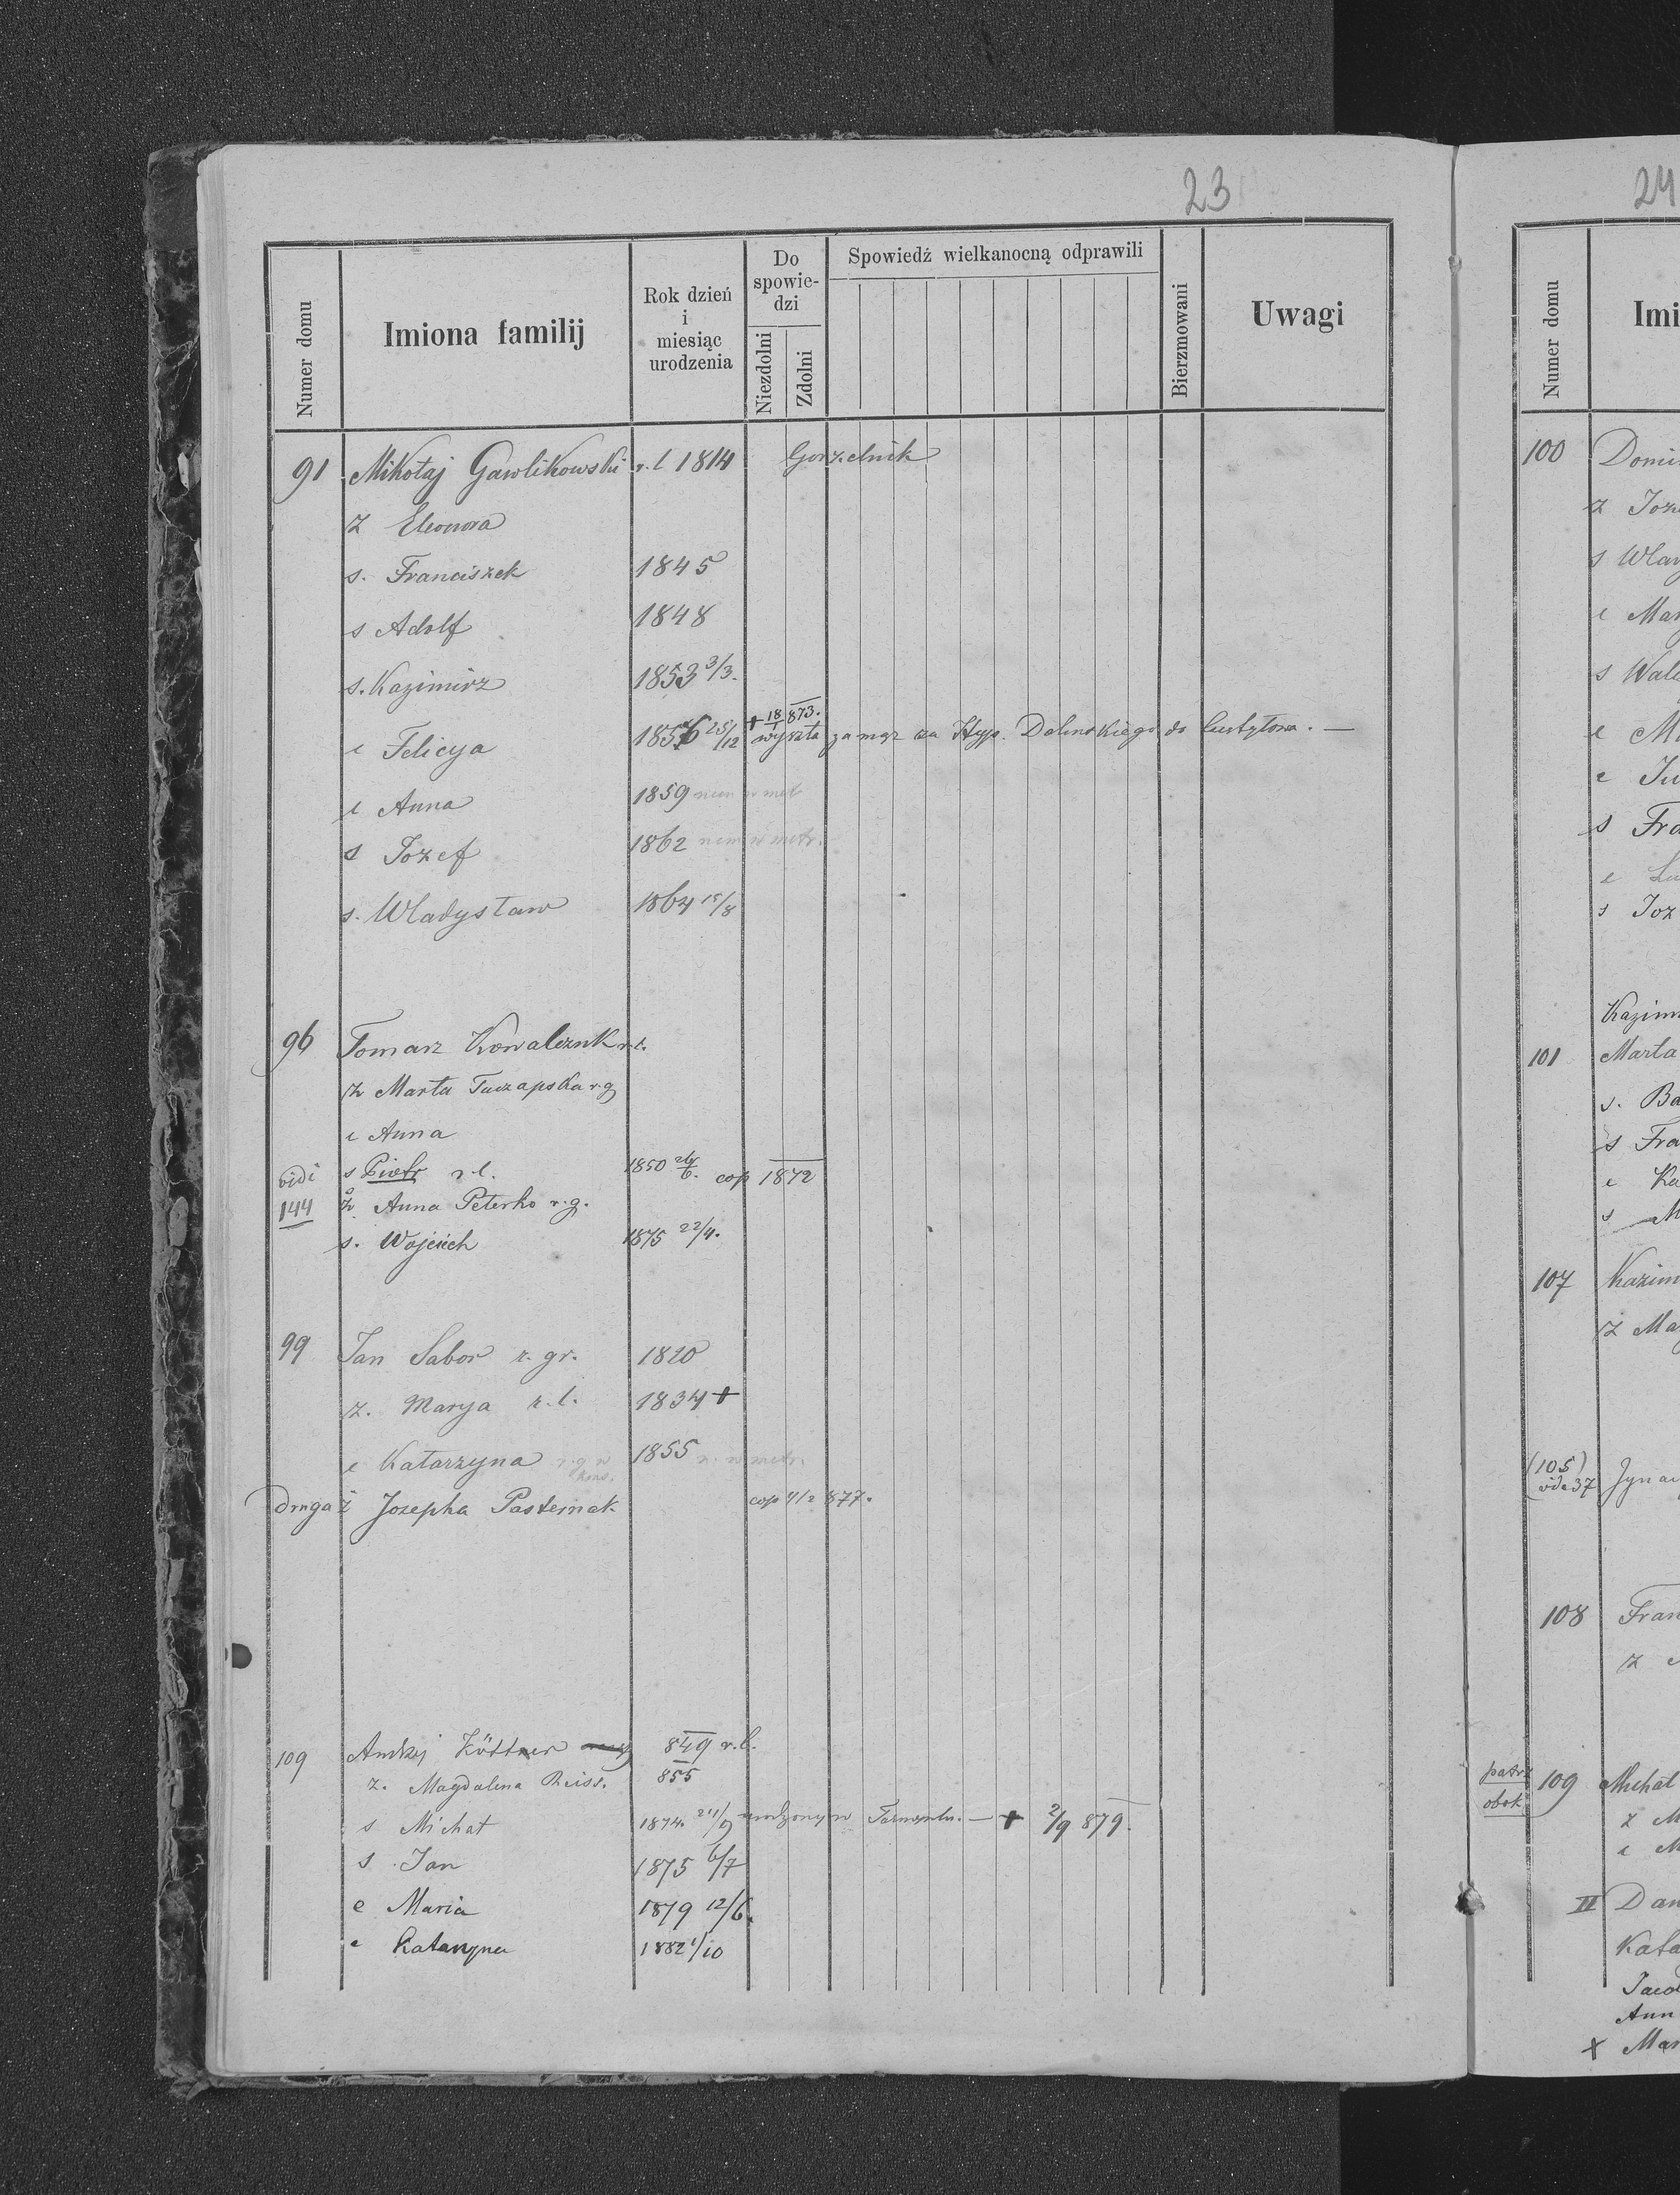 23
Numer domu
Imiona familij
Rok dzień i miesiąc urodzenia
Do spowiedzi
Niezdolni
Zdolni
Spowiedź wielkanocną odprawili
Bierzmowani
Uwagi
91 Mikołaj Gawlikowski r. l 1814 Gorzelnik
Z Eleonora
s. Franciszek 1845
s Adolf 1848
s. Kazimirz 1853 3/3.
c Felicya 1856 25/12 + 18/1 873. wyszła za mąż za Hyp. Dolinskiego do
c Anna 1859 niem w met
s Jozef 1862 niem w metr.
s. Władysław 1864 15/8
96 Tomasz Kowalczuk r. l.
Z Marta Tuczapska r. g
c Anna
vidi s Piotr r l. 1850 26/6. cop 1872
144 ż Anna Peterko r. g.
s. Wojciech 1875 22/4.
99 Jan Sabor r. gr. 1820
Z. Marya r. l. 1834 +
c Katarzyna r. g w 1855 n. w metr.
druga ż Jozepha Pasternak cop 4/2 877.
109 Andrzej Zöttner 849 r. l.
z. Magdalena Reiss. 855
s Michał 1874. 24/9 urodzony w + 2/9 879.
s. Jan 1875 6/7
c Maria 1879 12/6.
c Katarzyna 1882 1/10
24
Numer domu
Imi
100 Domi
Z Joz
s Wła
c Mar
s Wale
c Ma
c Ju
s Fra
c Lu
s Joz
Kazim
101 Marta
s. Ba
s Fra
c Ka
s M
107 Kazim
Z Ma
(105)
vide 37
108 Fran
Z
patrz
obok
109 Michał
Z M
c M
II Dan
Kata
Jacob
Ann
x Mar